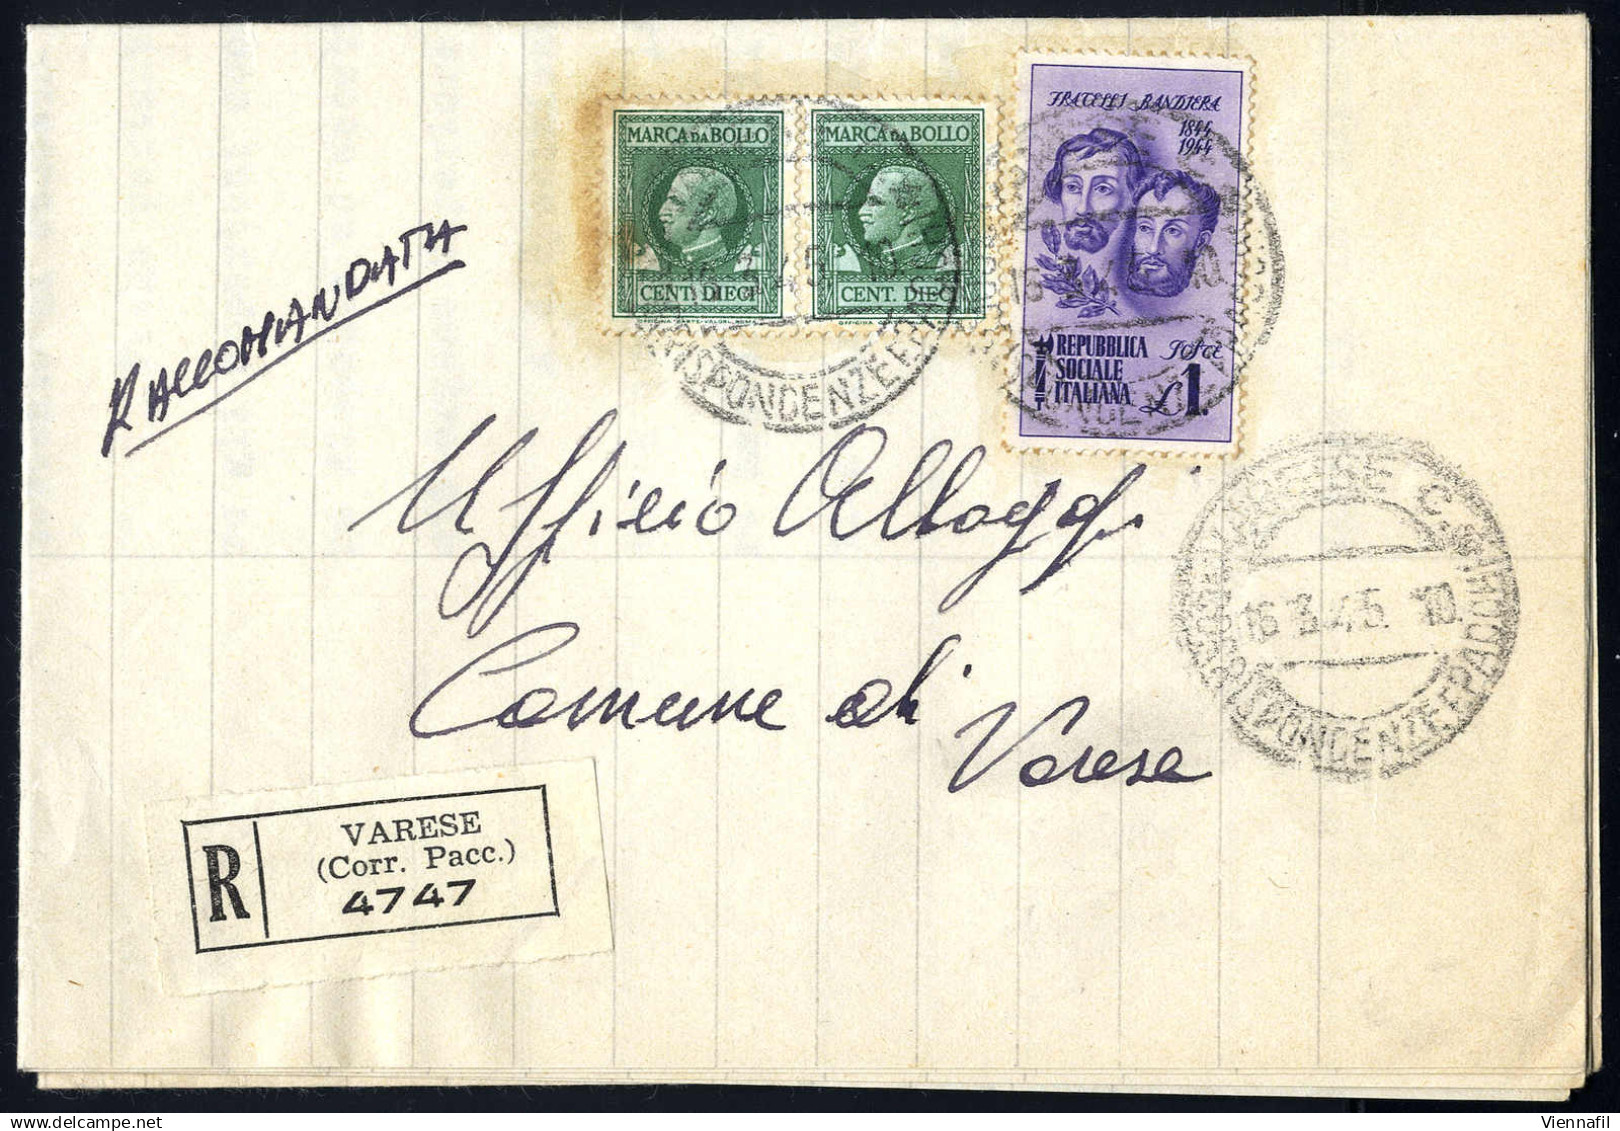 MARCA DA BOLLO
CENT. DIECI
MARCA DA BOLLO
CENT. DIECI
FRATELLI BANDIERA
1844
1944
REPUBBLICA
SOCIALE
ITALIANA
£1.
RACCOMANDATA
Uffizio Alloggi
Comune di
Varese
VARESE C.
16 3.45. 10.
CORRISPONDENZE E PACCHI
R
VARESE
(Corr. Pacc.)
4747
Viennafil